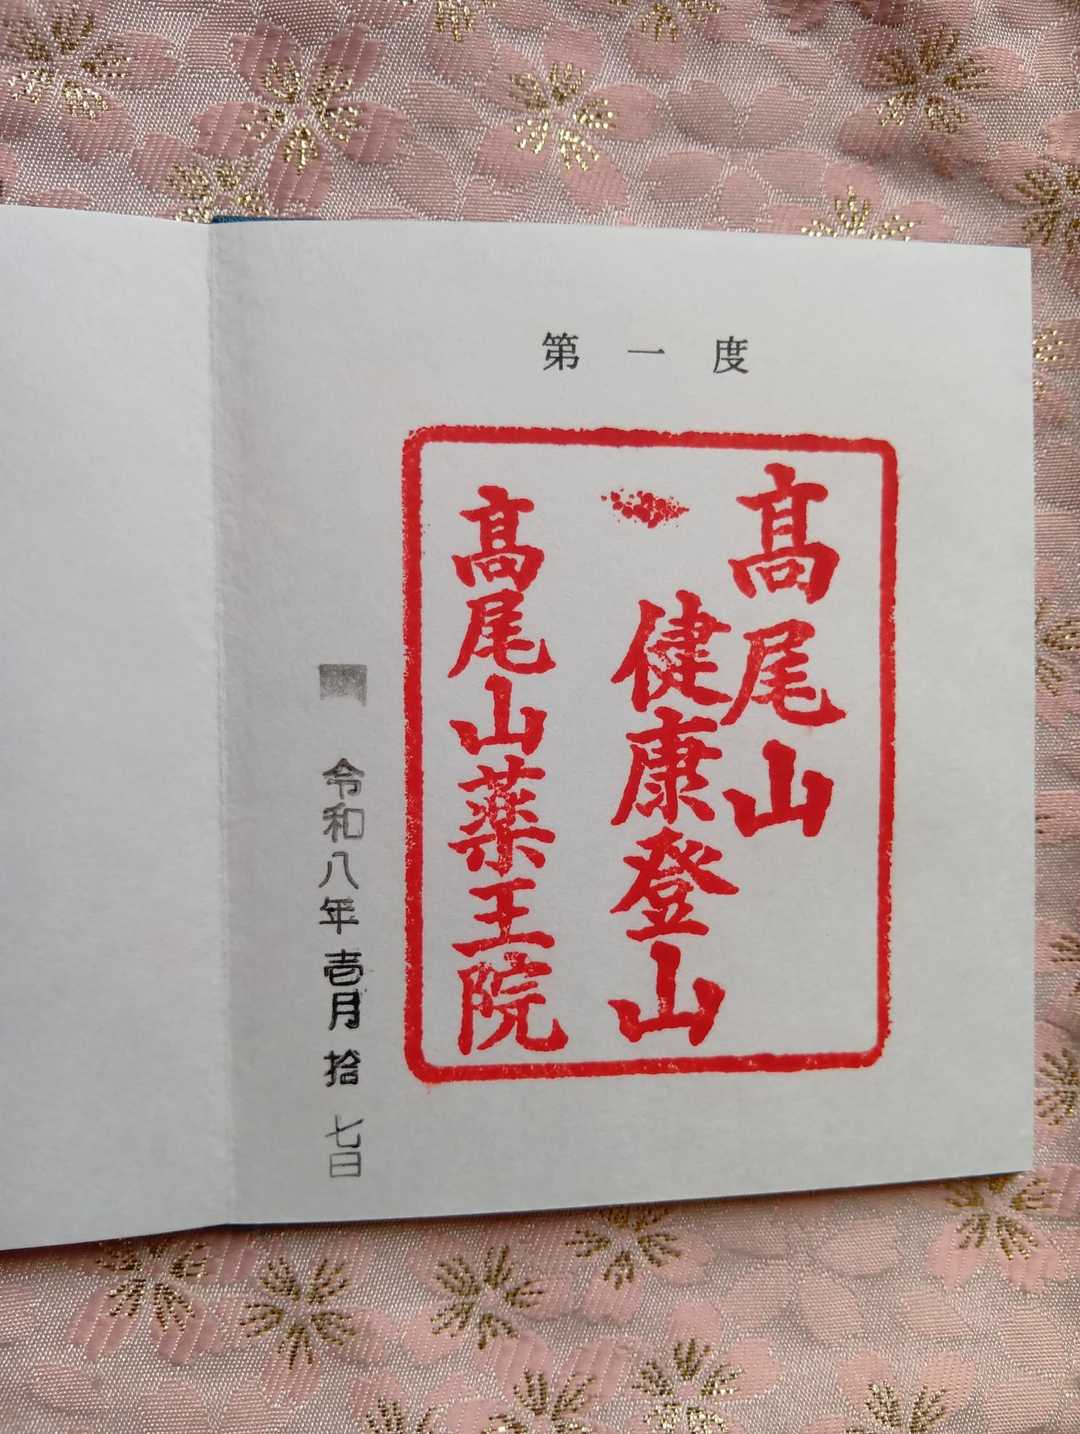 第一度
髙尾山
健康登山
髙尾山薬王院
令和八年壱月拾七日